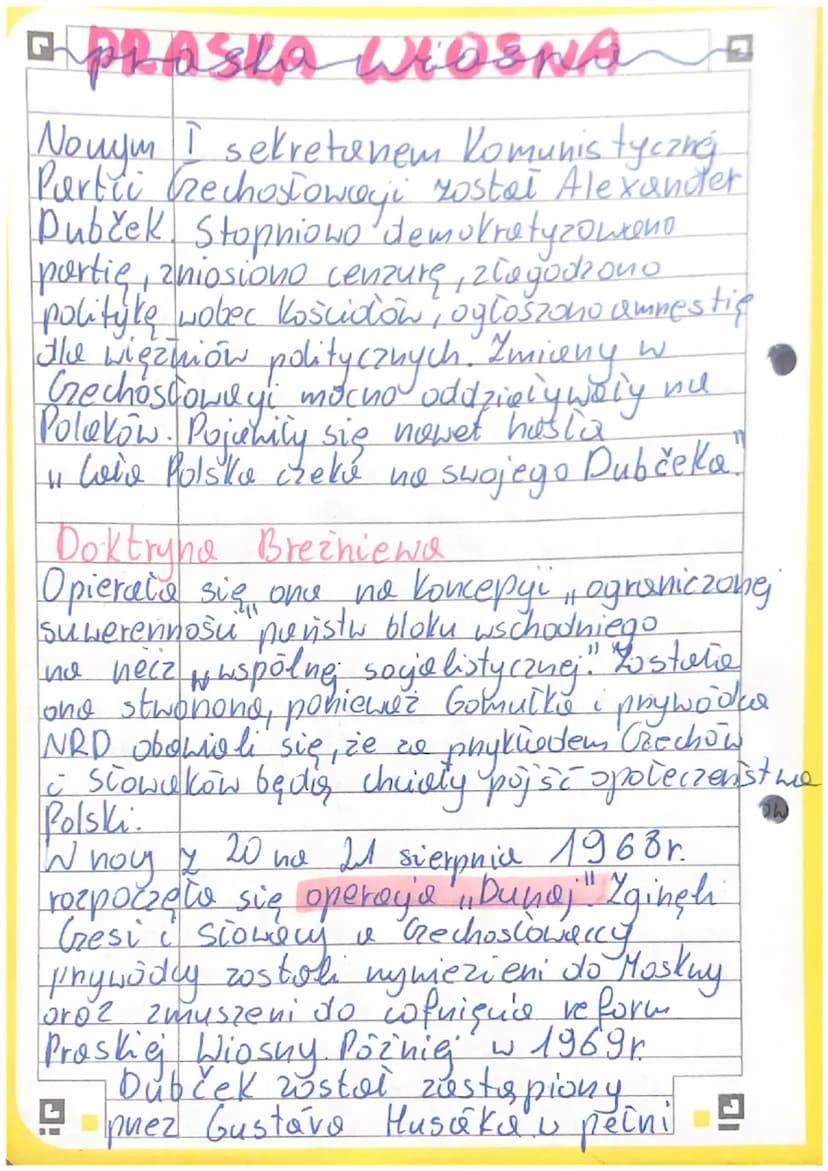 PRASKA WIOSNA
Nowym I sekretarzem Komunistycznej
Partii Czechosłowacji został Alexander
Dubček. Stopniowo demokratyzowano
partię, zniosiono cenzurę, złagodzono
politykę wobec Kościołów, ogłoszono amnestię
dla więźniów politycznych. Zmiany w
Czechosłowacji mocno oddziaływały na
Polaków. Pojawiły się nawet hasła
„Cała Polska czeka na swojego Dubčeka"
Doktryna Breżniewa
Opierała się ona na koncepcji „ograniczonej
suwerenności" państw bloku wschodniego
na rzecz „wspólnej socjalistycznej". Została
ona stworzona, ponieważ Gomułka i przywódca
NRD obawiali się, że za przykładem Czechów
i Słowaków będą chciały pójść społeczeństwa
Polski.
W nocy z 20 na 21 sierpnia 1968r.
rozpoczęła się operacja „Dunaj". Zginęli
Czesi i Słowacy a Czechosłowaccy
przywódcy zostali wywiezieni do Moskwy
oraz zmuszeni do cofnięcia reform
Praskiej Wiosny. Później w 1969r.
Dubček został zastąpiony
przez Gustáva Husáka w pełni